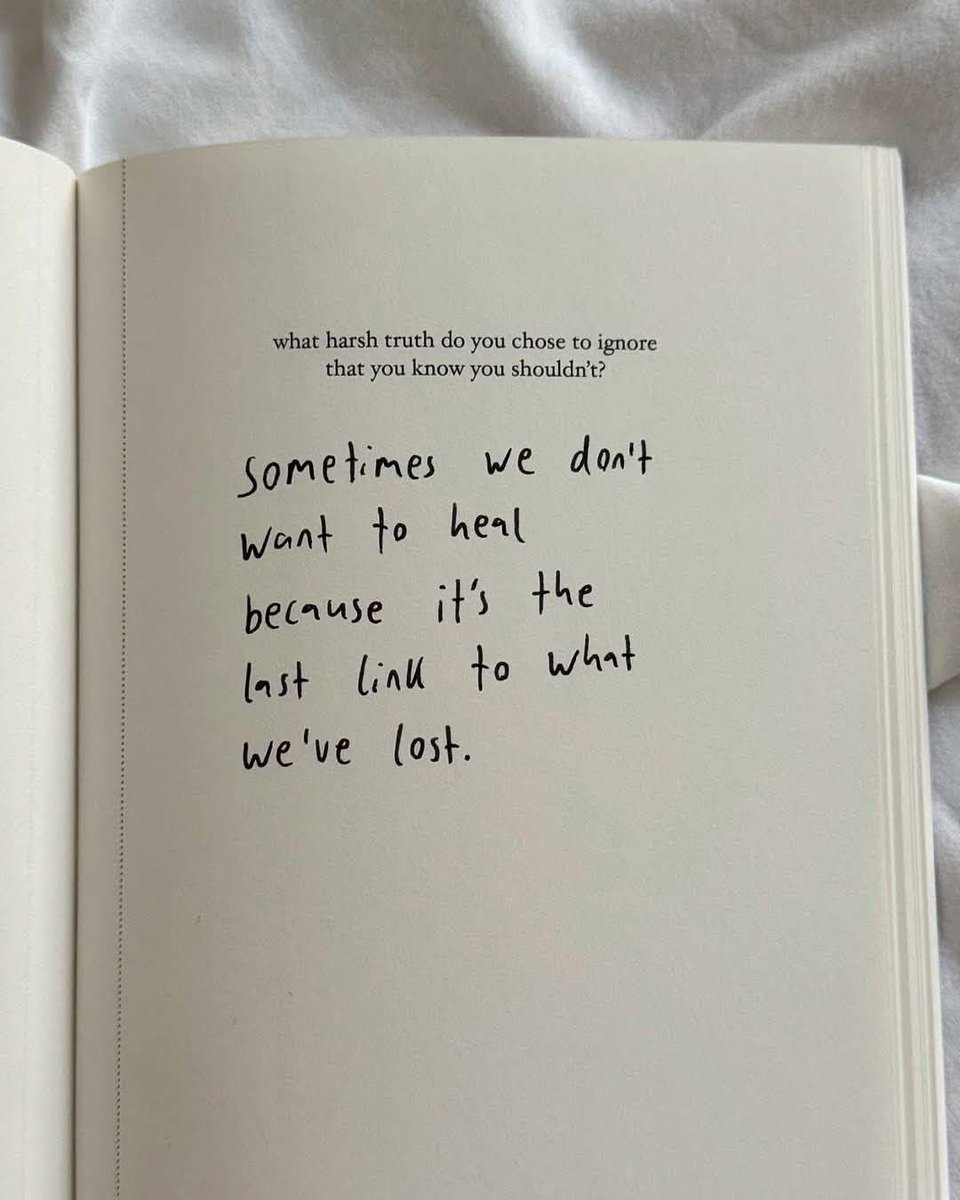 what harsh truth do you chose to ignore
that you know you shouldn't?
sometimes we don't
want to heal
because it's the
last link to what
we've lost.